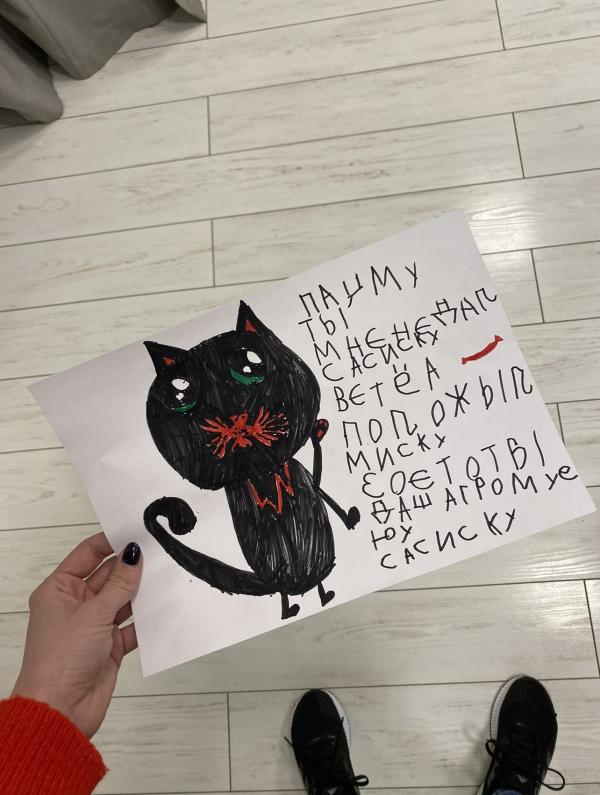 ПАЦМУ
ТЫ
МНЕ НЕ ДАЛ
САСИСКУ
ВЕТЁ Я
ПОЛОЖЫЛ
МИСКУ
ЕОЕТОТВІ
ДАШ АГРОМУЕ
ЮУ
САСИСКУ